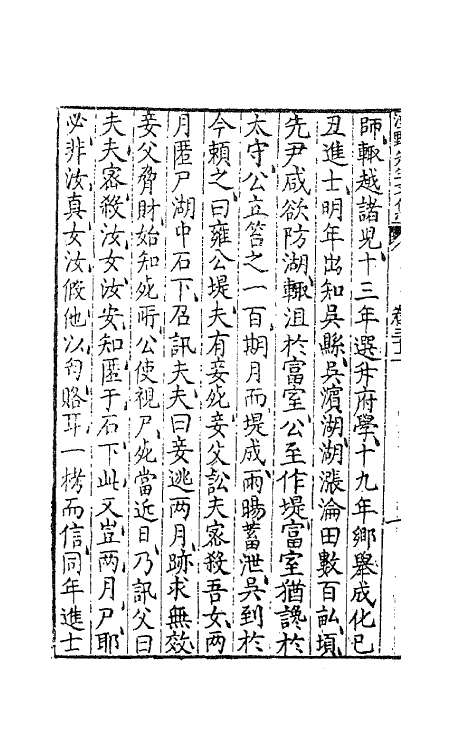 師輒越諸兒十三年選升府學十九年鄉舉成化已
丑進士明年出知吳縣吳濵湖湖漲淪田數百畆頃
先尹咸欲防湖輒沮於富室公至作堤富室猶讒於
太守公立笞之一百期月而堤成雨暘蓄泄吳到於
今頼之曰雍公堤夫有妾死妾父訟夫宻殺吾女两
月匿尸湖中石下召訊夫夫曰妾逃两月跡求無效
妾父脅財始知死所公使視尸死當近日乃訊父曰
夫夫宻殺汝女汝安知匿于石下此又豈两月尸耶
必非汝真女汝假他以匄賂耳一栲而信同年進士